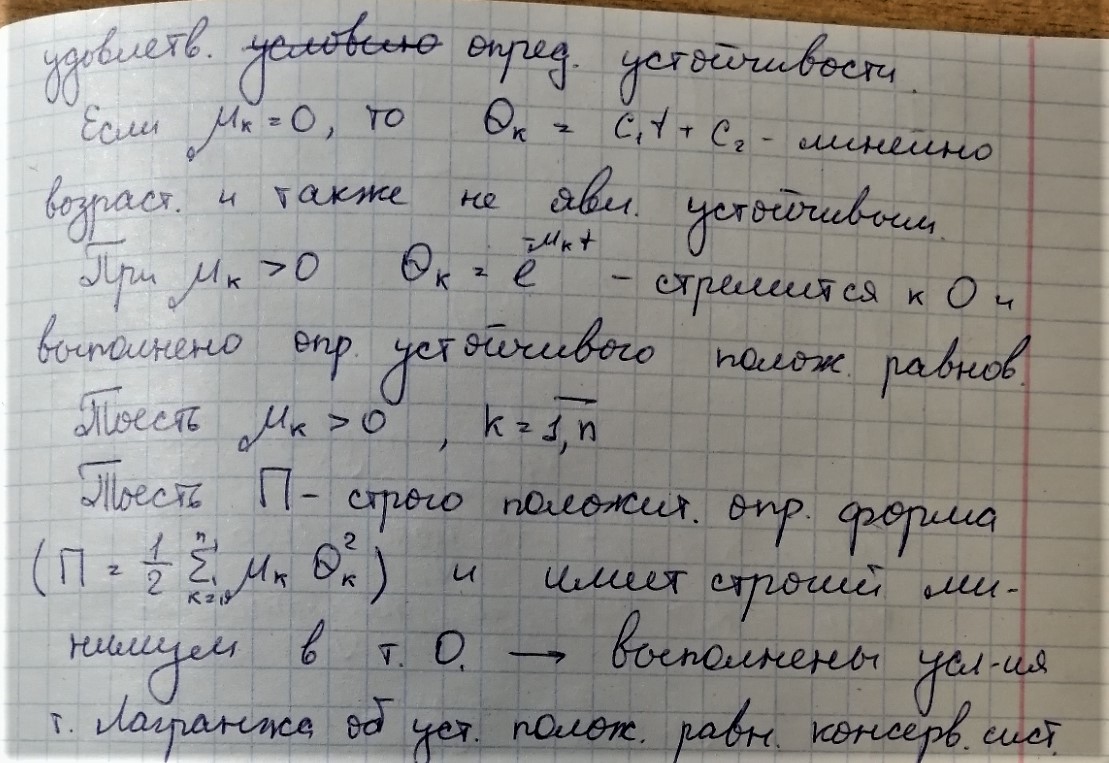 удовлетв. условию опред. устойчивости.
Если μₖ = 0, то Θₖ = C₁t + C₂ - линейно
возраст. и также не явл. устойчивым.
При μₖ > 0 Θₖ = e^{-μₖt} - стремится к 0 и
выполнено опр. устойчивого полож. равнов.
Тоесть μₖ > 0, k = \overline{1,n}
Тоесть П - строго положит. опр. форма
(П = 1/2 Σ_{k=1}^{n} μₖ Θₖ²) и имеет строгий ми-
нимум в т. О. → выполнены усл-ия
т. Лагранжа об уст. полож. равн. консерв. сист.